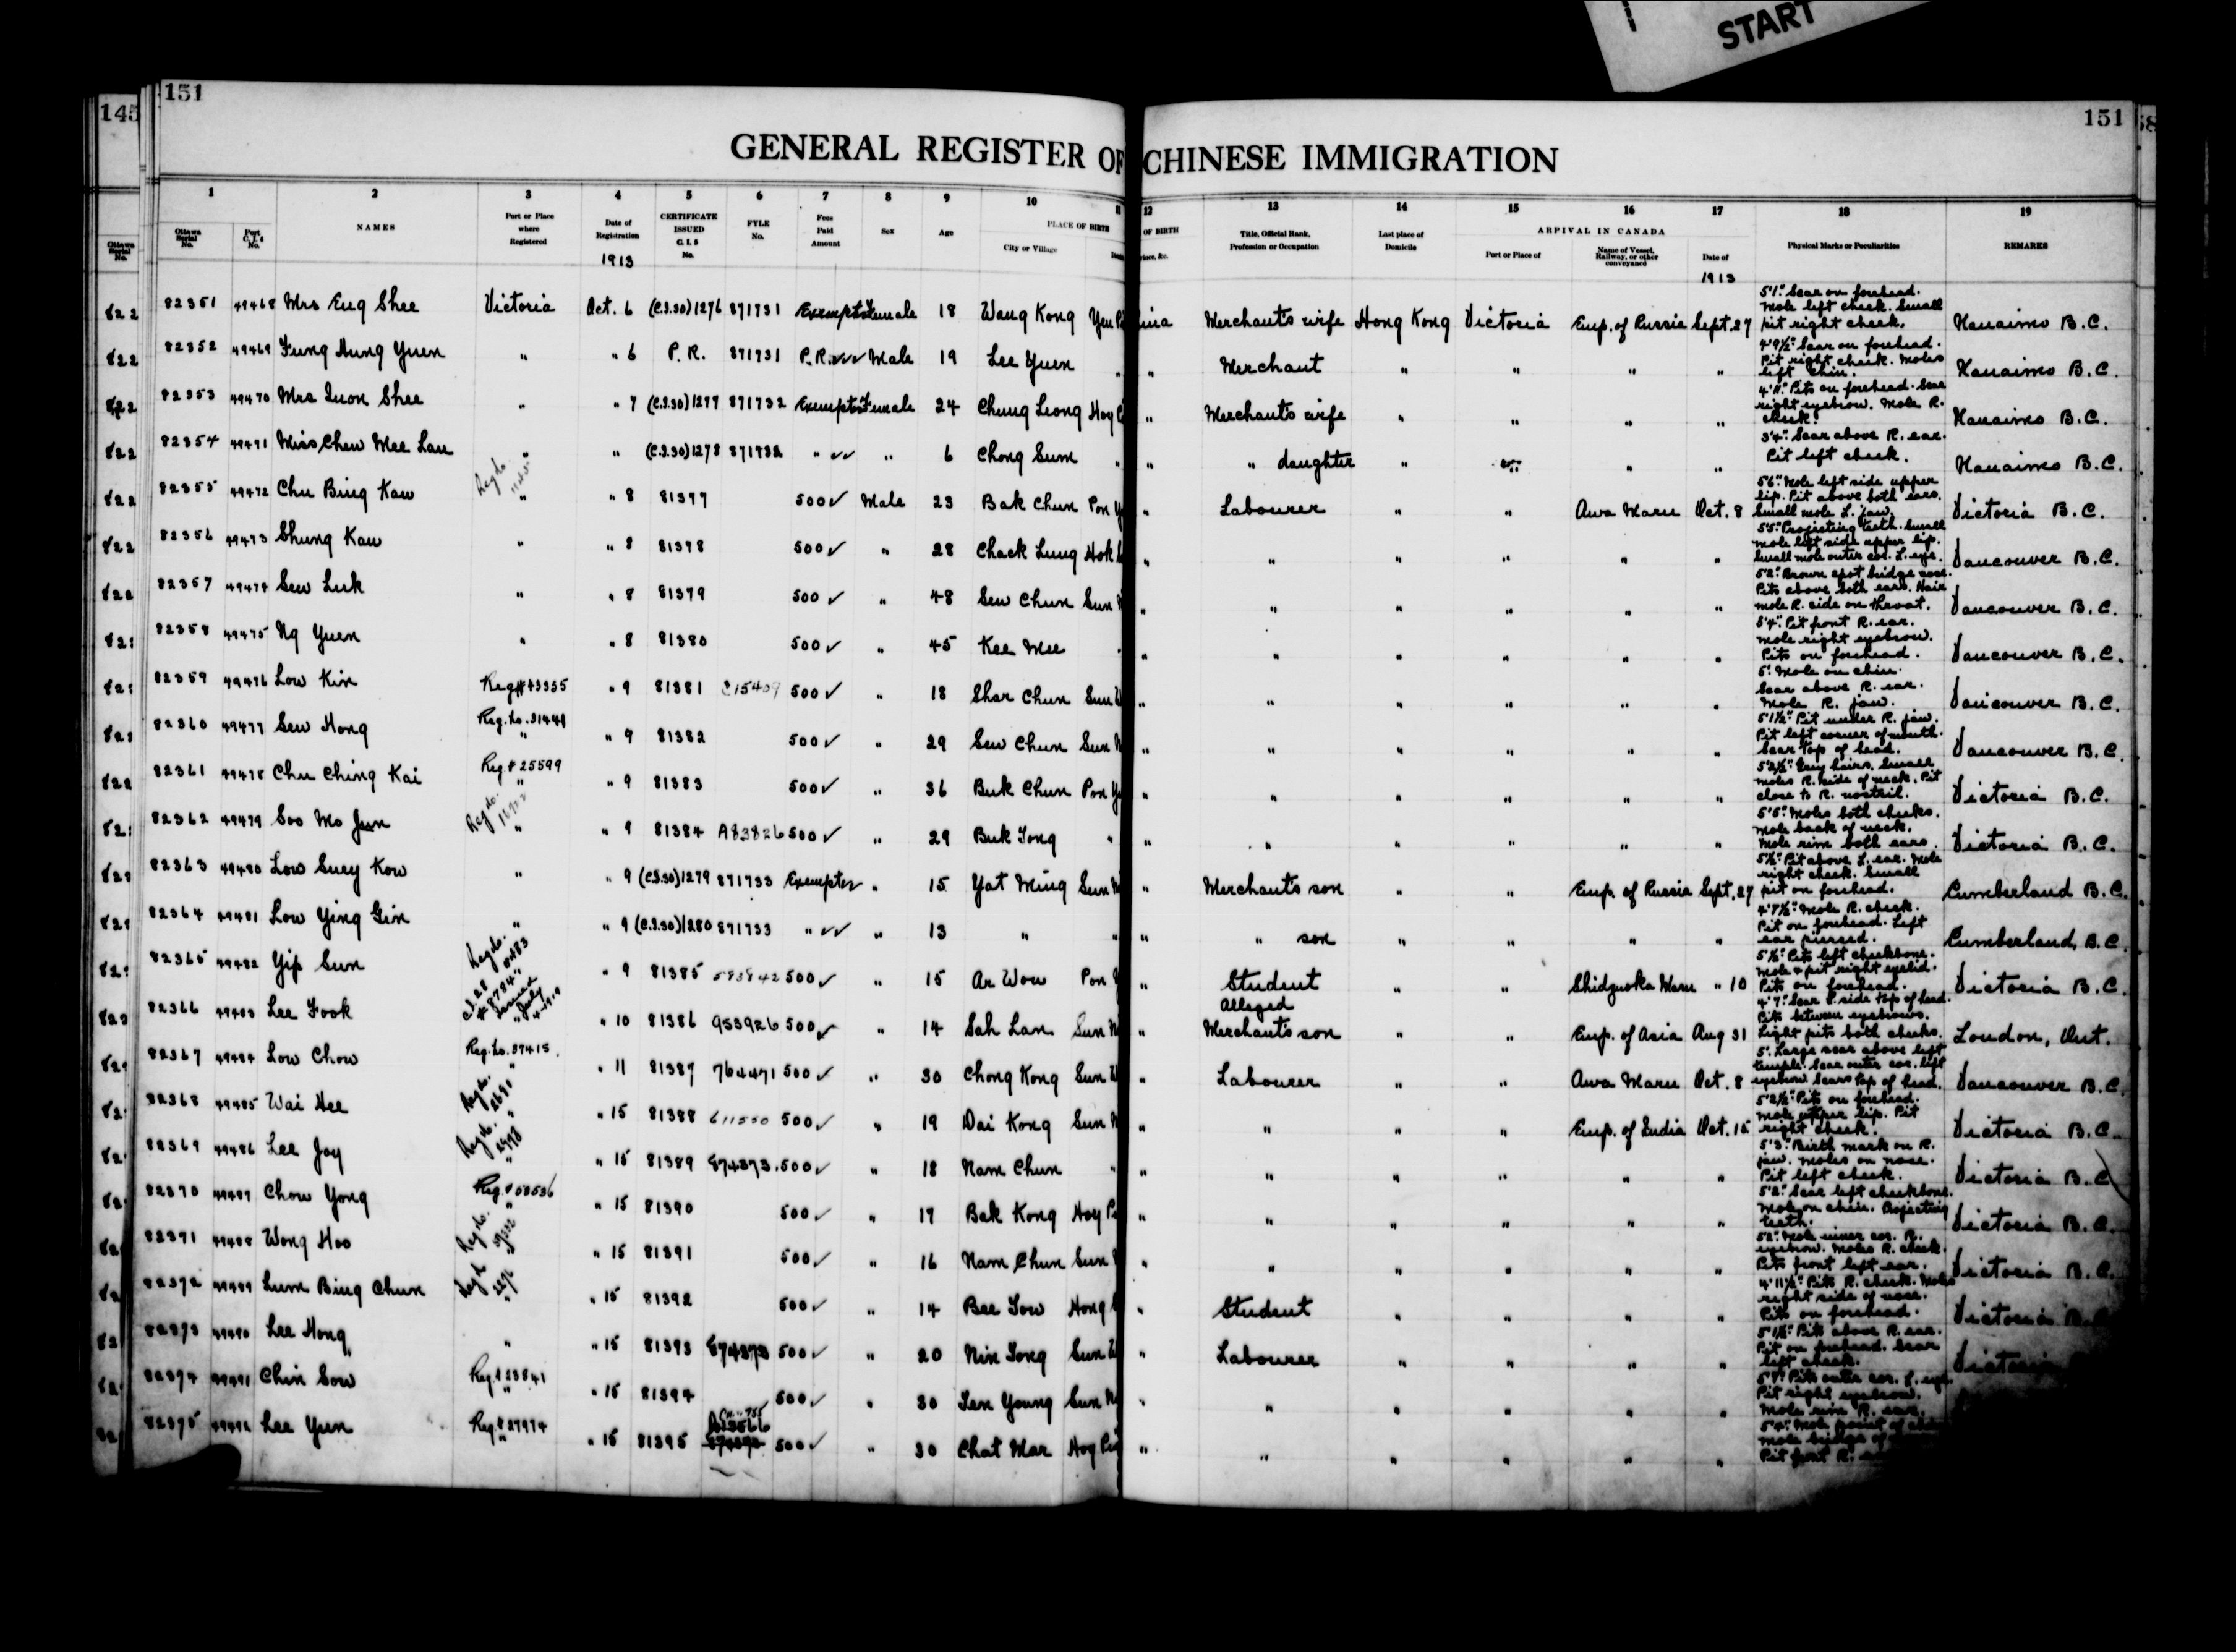 START
145
151
151
GENERAL REGISTER OF CHINESE IMMIGRATION
1 2 3 4 5 6 7 8 9 10 12 13 14 15 16 17 18 19
Ottawa Serial No. Port C.I.5 No. NAMES Port or Place where Registered Date of Registration CERTIFICATE ISSUED C.I.5 No. FYLE No. Fees Paid Amount Sex Age PLACE OF BIRTH City or Village OF BIRTH Title, Official Rank, Profession or Occupation Last place of Domicile ARRIVAL IN CANADA Port or Place of Name of Vessel, Railway, or other conveyance Date of Physical Marks or Peculiarities REMARKS
1913 1913
82351 49468 Mrs Eng Shee Victoria Oct. 6 (C.I.30) 1276 871731 Exempt Female 18 Wang Kong Merchant's wife Hong Kong Victoria Emp. of Russia Sept. 27 5'1". Scar on forehead. Mole left cheek. Small pit right cheek. Nanaimo B.C.
82352 49469 Fung Hung Yuen " " 6 P.R. 871731 P.R. Male 19 Lee Yuen " " Merchant " " " " 4'9½". Scar on forehead. Pit right cheek. Moles left chin. Nanaimo B.C.
82353 49470 Mrs Quon Shee " " 7 (C.I.30) 1277 871732 Exempt Female 24 Chung Leong Hoy " Merchant's wife " " " " 4'11". Pits on forehead. Scar right eyebrow. Mole R. cheek. Nanaimo B.C.
82354 49471 Miss Chew Mee Lan " " (C.I.30) 1278 871732 " " 6 Chong Sum " " " daughter " " " " 3'4". Scar above R. ear. Pit left cheek. Nanaimo B.C.
82355 49472 Chu Bing Kaw " " 8 81377 500 Male 23 Bak Chun Pon " Labourer " " Awa Maru Oct. 8 5'6". Mole left side upper lip. Pit above both ears. Small mole L. jaw. Victoria B.C.
82356 49473 Shung Kau " " 8 81378 500 " 28 Chack Lung Hok " " " " " " 5'5". Projecting teeth. Small mole left side upper lip. Small mole outer cor. L. eye. Vancouver B.C.
82357 49474 Sew Luk " " 8 81379 500 " 48 Sew Chun Sun " " " " " " 5'2". Brown spot bridge nose. Pits above both ears. Hair mole R. side on throat. Vancouver B.C.
82358 49475 Ng Yuen " " 8 81380 500 " 45 Kee Mee " " " " " " " 5'4". Pit front R. ear. Mole right eyebrow. Pits on forehead. Vancouver B.C.
82359 49476 Low Kin Reg# 43335 " 9 81381 500 " 18 Shar Chun Sun " " " " " " 5'. Mole on chin. Scar above R. ear. Mole R. jaw. Vancouver B.C.
82360 49477 Sew Hong Reg. No. 31441 " " 9 81382 500 " 29 Sew Chun Sun " " " " " " 5'1½". Pit under R. jaw. Pit left corner of mouth. Scar top of head. Vancouver B.C.
82361 49478 Chu Ching Kai Reg # 25599 " " 9 81383 500 " 36 Buk Chun Pon " " " " " " 5'2½". Grey hairs. Small moles R. side of neck. Pit close to R. nostril. Victoria B.C.
82362 49479 Soo Mo Jun " " 9 81384 A83826 500 " 29 Buk Tong " " " " " " " 5'5". Moles both cheeks. Mole back of neck. Mole rim both ears. Victoria B.C.
82363 49480 Low Suey Kow " " 9 (C.I.30) 1279 871733 Exempt " 15 Yat Ming Sun " Merchant's son " " Emp. of Russia Sept. 27 Pit above L. ear. Mole right cheek. Small pit on forehead. Cumberland B.C.
82364 49481 Low Ying Gin " " 9 (C.I.30) 1280 871733 " " 13 " " " " son " " " " 4'7½". Mole R. cheek. Pit on forehead. Left ear pierced. Cumberland, B.C.
82365 49482 Yip Sun " 9 81385 583842 500 " 15 Ar Wow Pon " Student " " Shidzuoka Maru " 10 Pits left cheekbone. Mole & pit right eyelid. Pits on forehead. Victoria B.C.
82366 49483 Lee Fook C.I.28 # 8784 issued July 4-1919 " 10 81386 953926 500 " 14 Sah Lan Sun " Alleged Merchant's son " " Emp. of Asia Aug 31 4'7". Scar side top of head. Pits between eyebrows. Light pits both cheeks. London, Ont.
82367 49484 Low Chow Reg. No. 37415 " " 11 81387 764471 500 " 30 Chong Kong Sun " Labourer " " Awa Maru Oct. 8 5'. Large scar above left temple. Scar outer cor. left eyebrow. Scars top of head. Vancouver B.C.
82368 49485 Wai Hee " 15 81388 611550 500 " 19 Dai Kong Sun " " " " Emp. of India Oct. 15 5'2½". Pits on forehead. Mole upper lip. Pit right cheek. Victoria B.C.
82369 49486 Lee Joy " 15 81389 874373 500 " 18 Nam Chun " " " " " " " 5'3". Birth mark on R. jaw. Moles on nose. Pit left cheek. Victoria B.C.
82370 49487 Chow Yong Reg. # 58536 " 15 81390 500 " 17 Bak Kong Hoy " " " " " " 5'2". Scar left cheekbone. Mole on chin. Projecting teeth. Victoria B.C.
82371 49488 Wong Hoo " 15 81391 500 " 16 Nam Chun Sun " " " " " " 5'2". Mole inner cor. R. eyebrow. Moles R. cheek. Pits front left ear. Victoria B.C.
82372 49489 Lum Bing Chun " 15 81392 500 " 14 Bee Tow Hong " Student " " " " 4'11½". Pits R. cheek. Moles right side of nose. Pits on forehead. Victoria B.C.
82373 49490 Lee Hong " " 15 81393 874373 500 " 20 Nin Tong Sun " Labourer " " " " 5'1½". Pits above R. ear. Pit on forehead. Scar left cheek. Victoria
82374 49491 Chin Sow Reg. # 23841 " " 15 81394 500 " 30 Tan Young Sun " " " " " " Pits outer cor. L. eye. Pit right eyebrow. Mole rim R. ear.
82375 49492 Lee Yun Reg. # 27974 " " 15 81395 500 " 30 Chat Mar Hoy " " " " " " Mole point of Mole bridge of Pit front R.